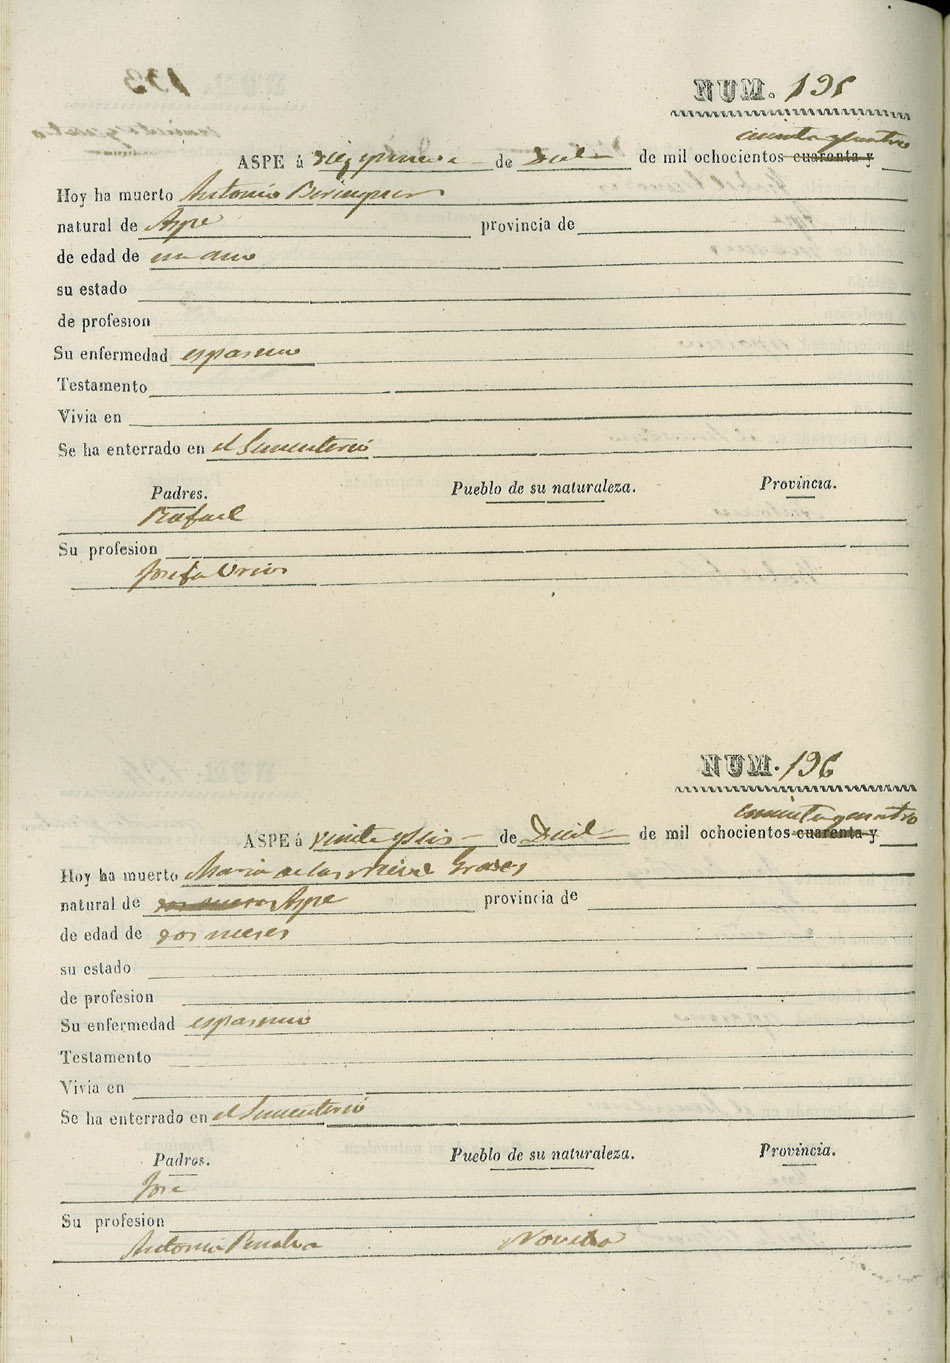 NUM. 195
cincuenta y cuatro
ASPE á diez y nueve de de mil ochocientos cuarenta y
Hoy ha muerto Antonio Berenguer
natural de Aspe provincia de
de edad de un año
su estado
de profesion
Su enfermedad espasmo
Testamento
Vivia en
Se ha enterrado en el Sementerio
Padres. Pueblo de su naturaleza. Provincia.
Rafael
Su profesion
Josefa Urios
NUM. 196
cincuenta y cuatro
ASPE á veinte y seis de de mil ochocientos cuarenta y
Hoy ha muerto Maria de las Nieves
natural de Aspe provincia de
de edad de dos meses
su estado
de profesion
Su enfermedad espasmo
Testamento
Vivia en
Se ha enterrado en el Sementerio
Padres. Pueblo de su naturaleza. Provincia.
Jose
Su profesion
Antonia Penalva Novelda